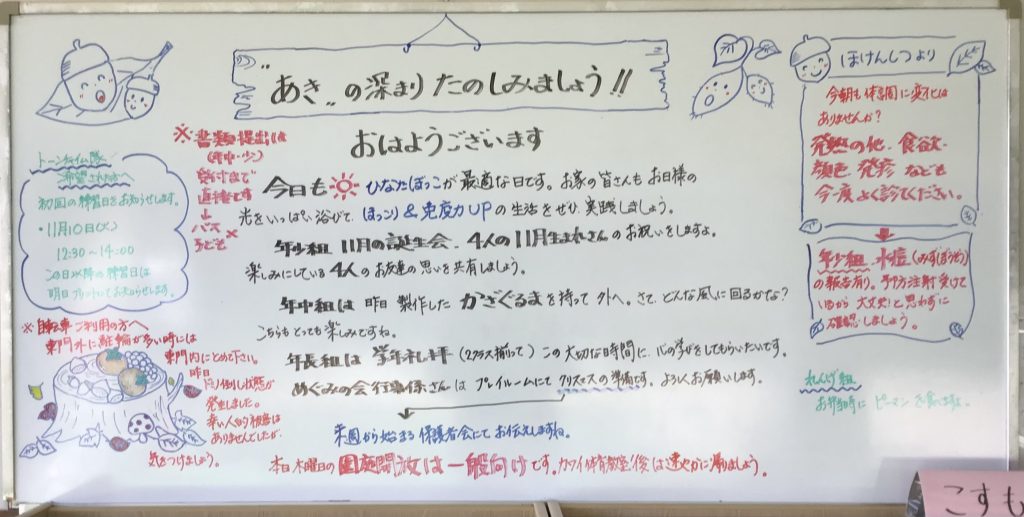 "あき"の深まり たのしみましょう!!
おはようございます
※書類提出は
(年中・少)
受付まで
直接です
↓
バス ×
子ども
トーンチャイム隊
希望された方へ
初回の練習日をお知らせします。
・11月10日(火)
12:30〜14:00
この日以降の練習日は
明日プリントしてお知らせします。
今日も ひなたぼっこが最適な日です。お家の皆さんもお日様の
光をいっぱい浴びて、ほっこり&免疫力UPの生活をぜひ実践しましょう。
年少組 11月の誕生会、4人の11月生まれさんのお祝いをしますよ。
楽しみにしている4人のお友達の思いを共有しましょう。
年中組は昨日製作したかざぐるまを持って外へ。さて、どんな風に回るかな?
こちらもとっても楽しみですね。
年長組は学年礼拝(2クラス揃って)この大切な時間に、心の学びをしてもらいたいです。
めぐみの会行事係さんはプレイルームにてクリスマスの準備です。よろしくお願いします。
来週から始まる保護者会にてお伝えしますね。
本日木曜日の園庭開放は一般向けです。カワイ体育教室後は速やかに帰りましょう。
※自転車ご利用の方へ
東門外に駐輪が多い時には
東門内にとめて下さい。
昨日
倒し状態が
発生しました。
幸い人的被害は
ありませんでしたが、
気をつけましょう。
ほけんしつより
今朝も体調に変化は
ありませんか?
発熱の他、食欲、
顔色、発疹なども
今一度よく診てください。
年少組 水痘(みずぼうそう)
の報告有り。予防注射受けて
いるから大丈夫!と思わずに
確認しましょう。
れんげ組
お弁当時にピーマンを
こすも